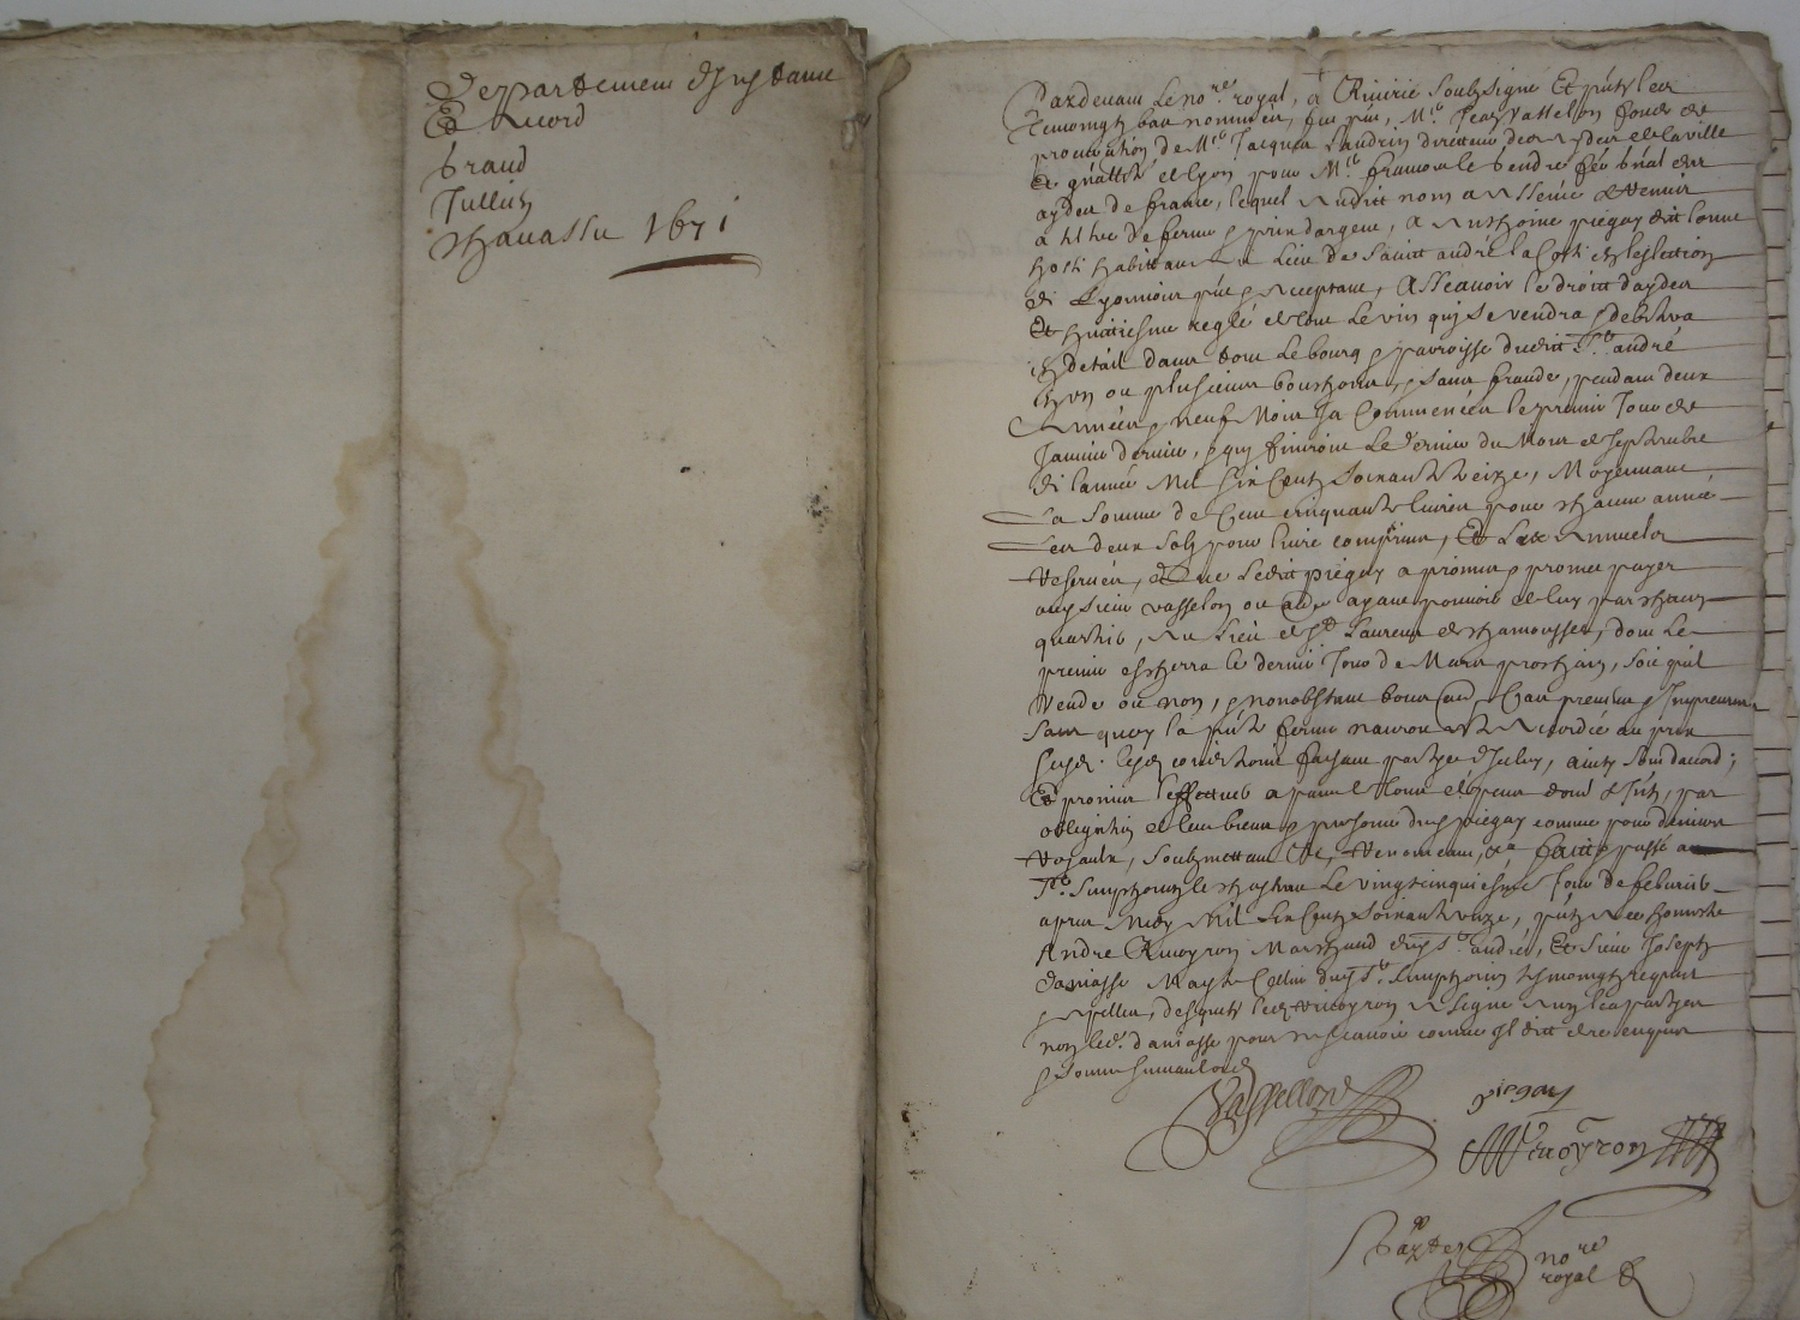 Departement
Et accord
braud
Jullien
1671
Pardevant le no.re royal, a Riverie soubzsigné Et p~ntz les
tesmoingtz bas nommés, fut p~nt, M.e Jean Vasselon fondé de
procuration de M.e Jacques Laudrin directeur des aydes de la ville
Et g~nallité de lyon pour M.e francois le gendre g~nal des
aydes de france, lequel audit nom a
a tiltre de ferme & prix dargent, a Anthoine piegay dit bonne
habittant au Lieu de Sainct andré la Coste en leslection
de Lyonnois p~nt & acceptant, Assavoir le droict daydes
Et huittiesme reglé de tout le vin quy se vendra & debitera
en detail dans tout le bourg & parroisse dudict S.t andré
en un ou plusieurs bouchons, & sans fraude, pendant deux
Années & neuf Mois Ja Commencées le premier Jour de
Janvier dernier, & quy finiront le dernier du Mois de septembre
de l'année Mil six Centz soixante treize, Moyennant
La somme de Cent cinquante livres pour chacune année
Les deux solz pour livre comprins, Et les annuelz
reservés, que ledict piegay a promis & promet payer
aud sieur vasselon ou autre ayant pouvoir de luy par chacun
quartier, au Lieu de S.t Laurent de chamousset, dont le
premier escherra le dernier Jour de Mars prochain, soit quil
Vende ou non, & nonobstant tous
sans quoy la p~nte ferme nauroit esté accordée au prix
susd. faisant partye dicelle, ainsy sont daccord;
Et promis l'effectuer a peine de tous despens dom. & Int., par
obligation de leurs biens & personne dud piegay comme pour deniers
royaulx, soubzmettant &c, renonceant, &a faict & passé a
S.t Simphorien le chasteau Le vingtcinquiesme Jour de febvrier
apres Midy Mil six Centz soixante unze, p~ntz a ce honneste
Andre Vincoyron Marchand dud S.t andré, Et sieur Joseph
daniasse Maystre dud S.t Simphorien tesmoingtz requis
& appellés, desquelz led Vincoyron a signé avec les partyes
non led. daniasse pour ne scavoir comme Il dict de ce enquis
& sommé suivant lord.
Vasselon
piegay
Vincoyron
no.re
royal